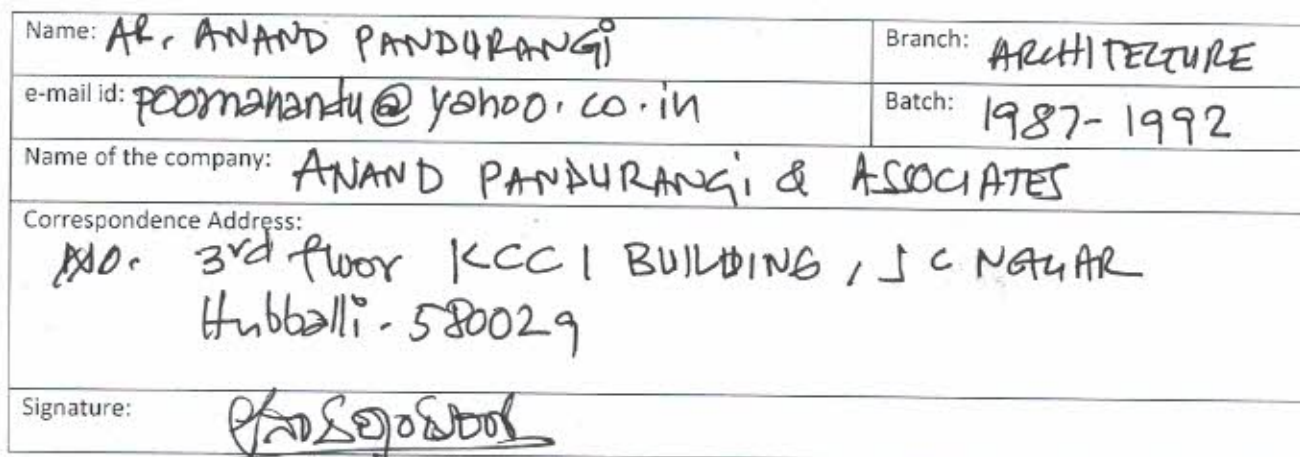 Name: AR. ANAND PANDURANGi
Branch: ARCHITECTURE
e-mail id: poornanandu@yahoo.co.in
Batch: 1987-1992
Name of the company: ANAND PANDURANGi & ASSOCIATES
Correspondence Address:
NO. 3rd floor KCCI BUILDING, J C NAGAR
Hubballi - 580029
Signature: